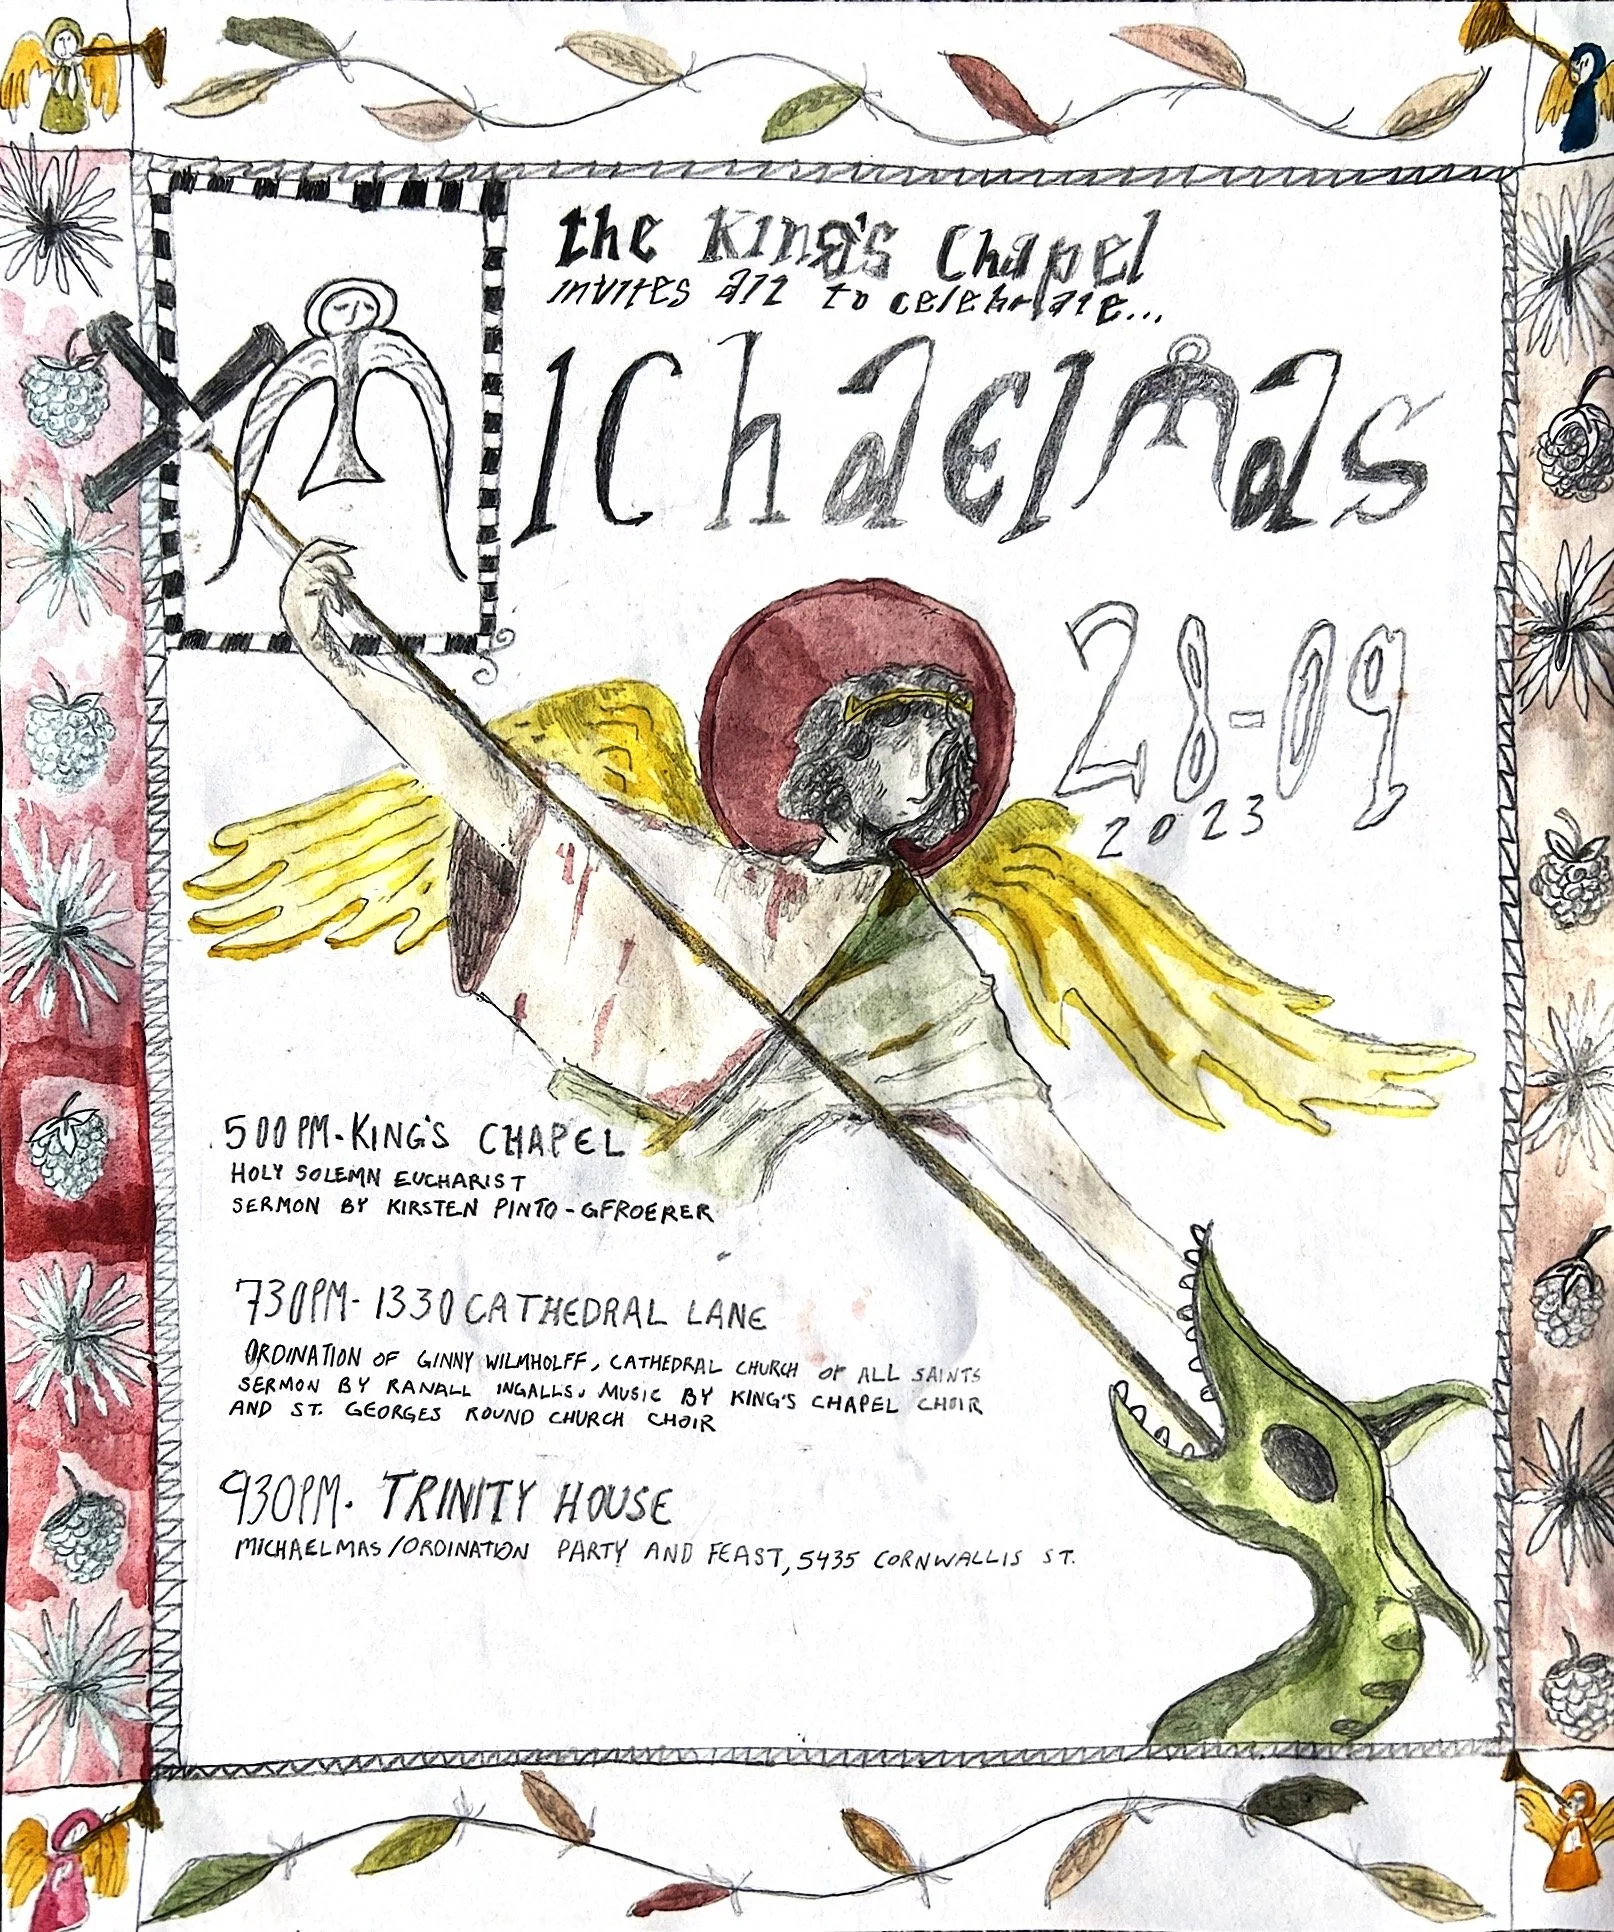 the King's Chapel
invites all to celebrate...
Michaelmas
28-09
2023
500PM-KING'S CHAPEL
HOLY SOLEMN EUCHARIST
SERMON BY KIRSTEN PINTO-GFROERER
730PM-1330 CATHEDRAL LANE
ORDINATION OF GINNY WILMHOLFF, CATHEDRAL CHURCH OF ALL SAINTS
SERMON BY RANALL INGALLS. MUSIC BY KING'S CHAPEL CHOIR
AND ST. GEORGES ROUND CHURCH CHOIR
930PM. TRINITY HOUSE
MICHAELMAS/ORDINATION PARTY AND FEAST, 5435 CORNWALLIS ST.